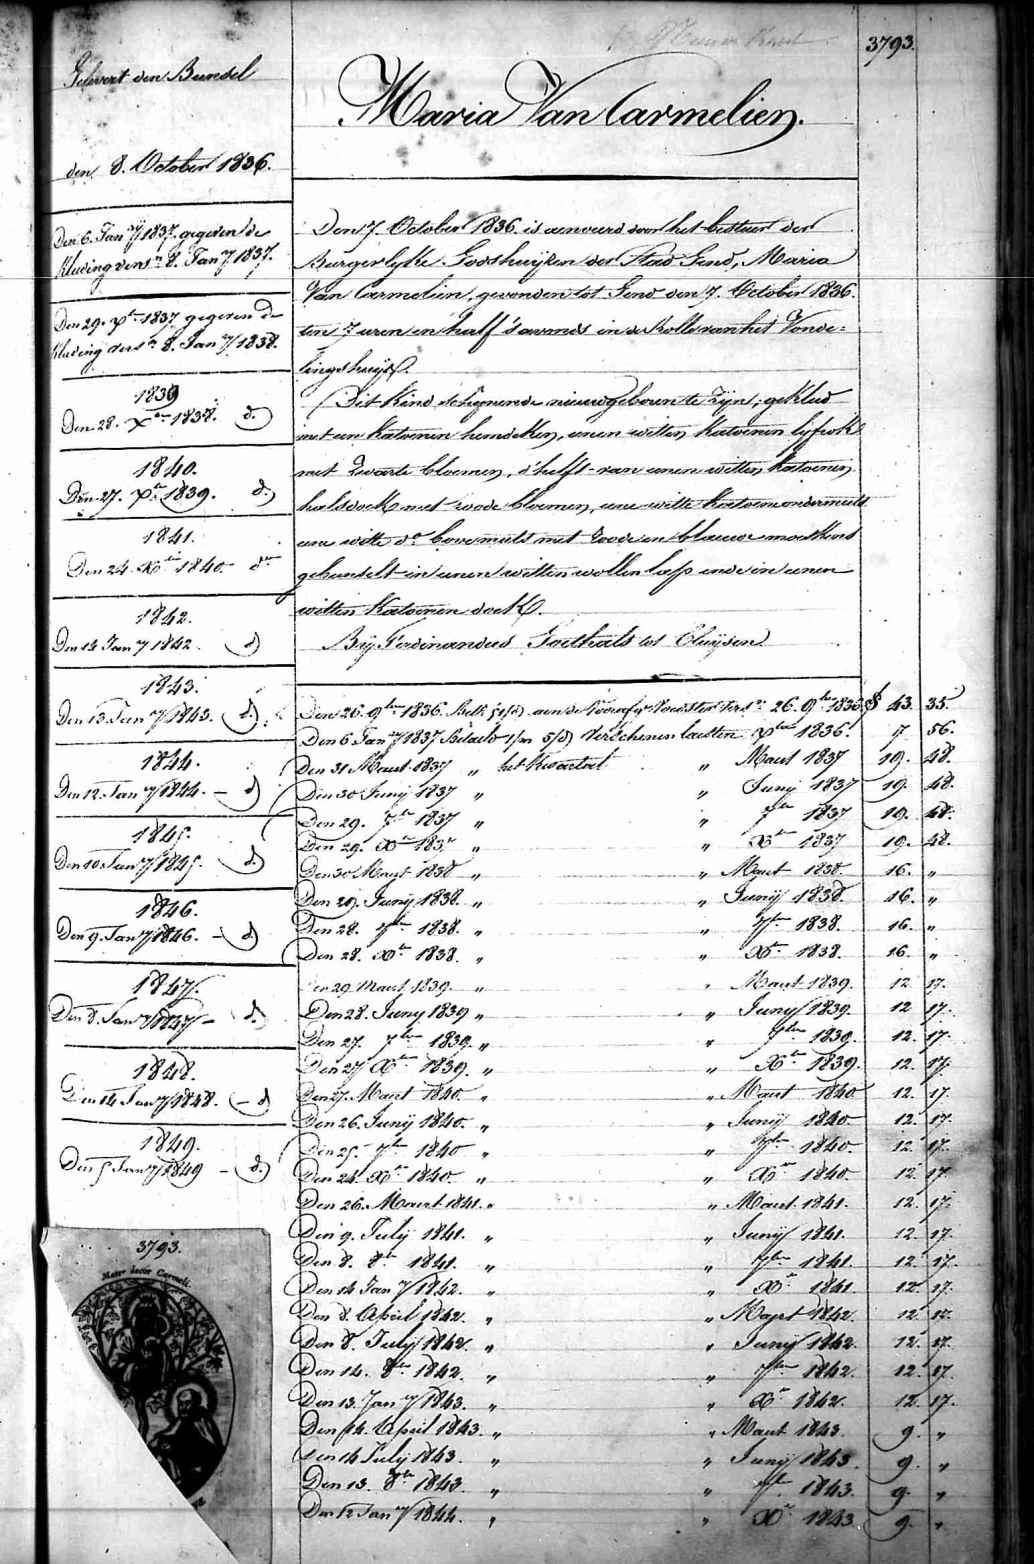 3793.
Maria Van Carmelien.
Gelevert den Bundel
den 8. October 1836.
Den 6. Jan ry 1837. gegeven de
kleeding versn. 8. Jan ry 1837.
Den 29. Xber 1837 gegeven de
kleeding versn. 8. Jan ry 1838.
1839
Den 28. Xber 1838. do
1840.
Den 27. Xber 1839. do
1841.
Den 24. Xber 1840 do
1842.
Den 14 Jan ry 1842 do
1843.
Den 13 Jan ry 1843. do
1844.
Den 12. Jan ry 1844. - do
1845.
Den 10 Jan ry 1845. do
1846.
Den 9. Jan ry 1846. - do
1847.
Den 8. Jan ry 1847 - do
1848.
Den 14 Jan ry 1848. - do
1849.
Den 5 Jan ry 1849 - do
3793.
Mater decor Carmeli.
Den 7. October 1836. is aenveird door het bestier der
Burgerlyke Godshuijzen der Stad Gend, Maria
Van Carmelien, gevonden tot Gend den 7. October 1836.
ten 7 uren en half 's avonds in de Rolle van het Vonde-
lingshuijs.
Dit Kind schynende nieuwgeboren te zijn, gekleed
met een katoenen hemdeken, eenen witten katoenen lyfrok
met zwarte bloemen, d'helft van eenen witten katoenen
halsdoek met roode bloemen, eene witte katoene ondermuts
eene witte do bovenmuts met roode en blauwe moeskens
gebunselt in eenen witten wollen lap ende in eenen
witten katoenen doek.
Bij Ferdinandus Goethals tot Cluijsen
Den 26. 9ber 1836. aen de Voorsr. 26. 9ber 1836. 43. 35.
Den 6 Jan ry 1837 Betaelt Verschenen laetsten Xber 1836. 7 56.
Den 31 Maert 1837 " het kwartael " Maert 1837 19. 48.
Den 30 Junij 1837 " " Junij 1837 19. 48.
Den 29. 7ber 1837 " " 7ber 1837 19. 48.
Den 29. Xber 1837 " " Xber 1837 19. 48.
Den 30 Maert 1838 " " Maert 1838. 16. "
Den 29. Junij 1838. " " Junij 1838. 16. "
Den 28. 7ber 1838. " " 7ber 1838. 16. "
Den 28. Xber 1838. " " Xber 1838. 16. "
Den 29 Maert 1839. " " Maert 1839. 12 17.
Den 28. Juny 1839 " " Juny 1839. 12 17.
Den 27. 7ber 1839. " " 7ber 1839. 12. 17.
Den 27 Xber 1839. " " Xber 1839. 12. 17.
Den 27. Maert 1840. " " Maert 1840 12. 17.
Den 26. Junij 1840. " " Junij 1840 12. 17.
Den 25. 7ber 1840 " " 7ber 1840. 12. 17.
Den 24. Xber 1840. " " Xber 1840 12. 17.
Den 26. Maert 1841. " " Maert 1841. 12. 17.
Den 9. July 1841. " " Junij 1841. 12. 17.
Den 8. 8ber 1841. " " 7ber 1841. 12. 17.
Den 14 Jan ry 1842. " " Xber 1841. 12. 17.
Den 8. April 1842. " " Maert 1842. 12 17.
Den 8. July 1842. " " Junij 1842. 12. 17.
Den 14. 8ber 1842. " " 7ber 1842. 12. 17.
Den 13. Jan ry 1843. " " Xber 1842. 12. 17.
Den 14. April 1843. " " Maert 1843. 9. "
Den 14 July 1843. " " Junij 1843. 9. "
Den 13. 8ber 1843. " " 7ber 1843. 9. "
Den 12 Jan ry 1844. " " Xber 1843 9. "